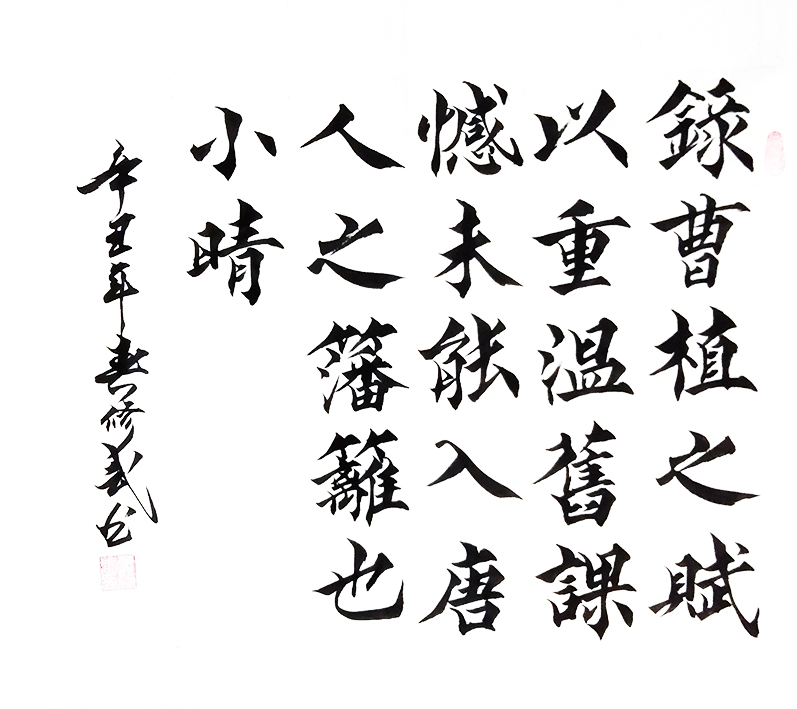 錄曹植之賦
以重温舊課
憾未能入唐
人之藩籬也
小晴
辛丑年春修武书